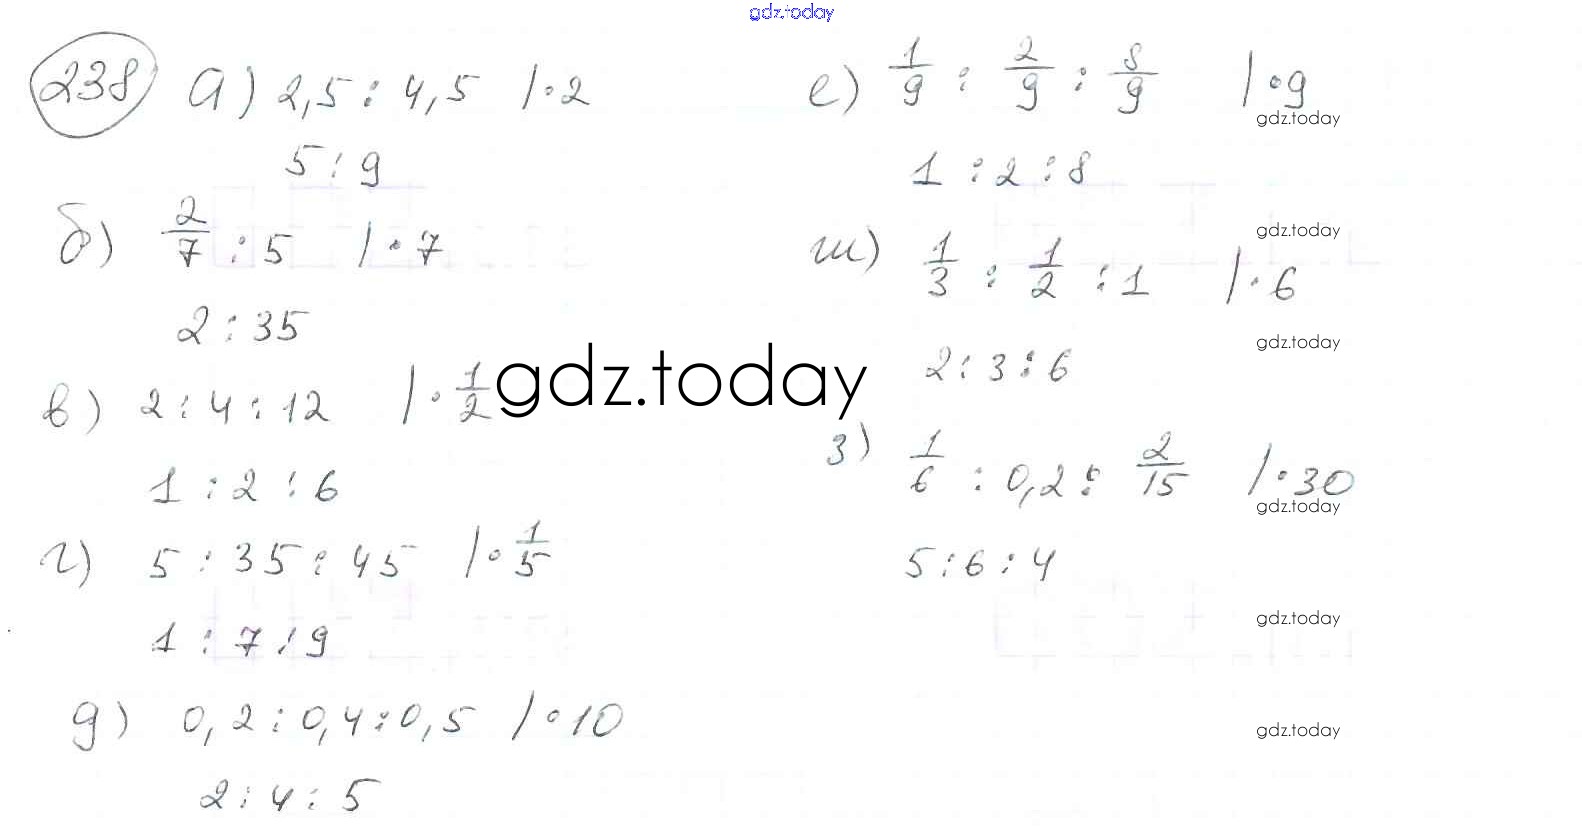 gdz.today
238 а) 2,5 : 4,5 | · 2
5 : 9
б) 2/7 : 5 | · 7
2 : 35
в) 2 : 4 : 12 | · 1/2
1 : 2 : 6
г) 5 : 35 : 45 | · 1/5
1 : 7 : 9
д) 0,2 : 0,4 : 0,5 | · 10
2 : 4 : 5
е) 1/9 : 2/9 : 8/9 | · 9
gdz.today
1 : 2 : 8
gdz.today
ж) 1/3 : 1/2 : 1 | · 6
gdz.today
2 : 3 : 6
gdz.today
з) 1/6 : 0,2 : 2/15 | · 30
gdz.today
5 : 6 : 4
gdz.today
gdz.today